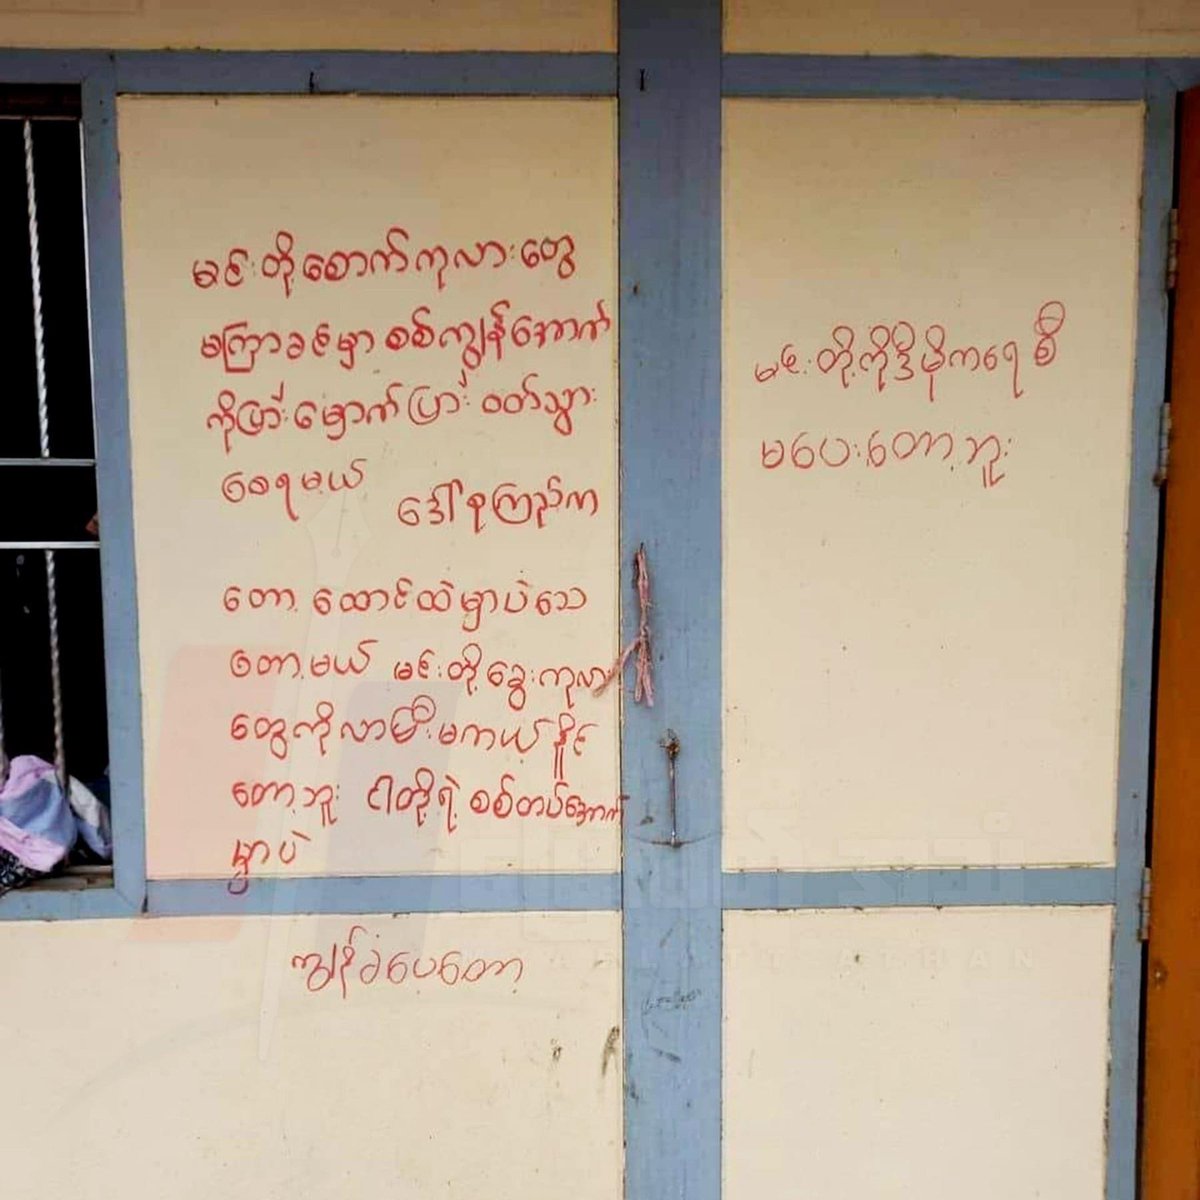 မင်းတို့စောက်ကုလားတွေ
မကြာခင်မှာ စစ်ကျွန်အောက်
ကိုပြားမှောက်ပြား ဝတ်သွား
စေရမယ်
ဒေါ်စုကြည်က
တော့ ထောင်ထဲမှာပဲသေ
တော့မယ် မင်းတို့ခွေးကုလား
တွေကိုလာပြီးမကယ်နိုင်
တော့ဘူး ငါတို့ရဲ့ စစ်တပ်အောက်
မှာပဲ
ကျွန်ခံပေတော့
မင်းတို့ကိုဒီမိုကရေစီ
မပေးတော့ဘူး
ATHAN